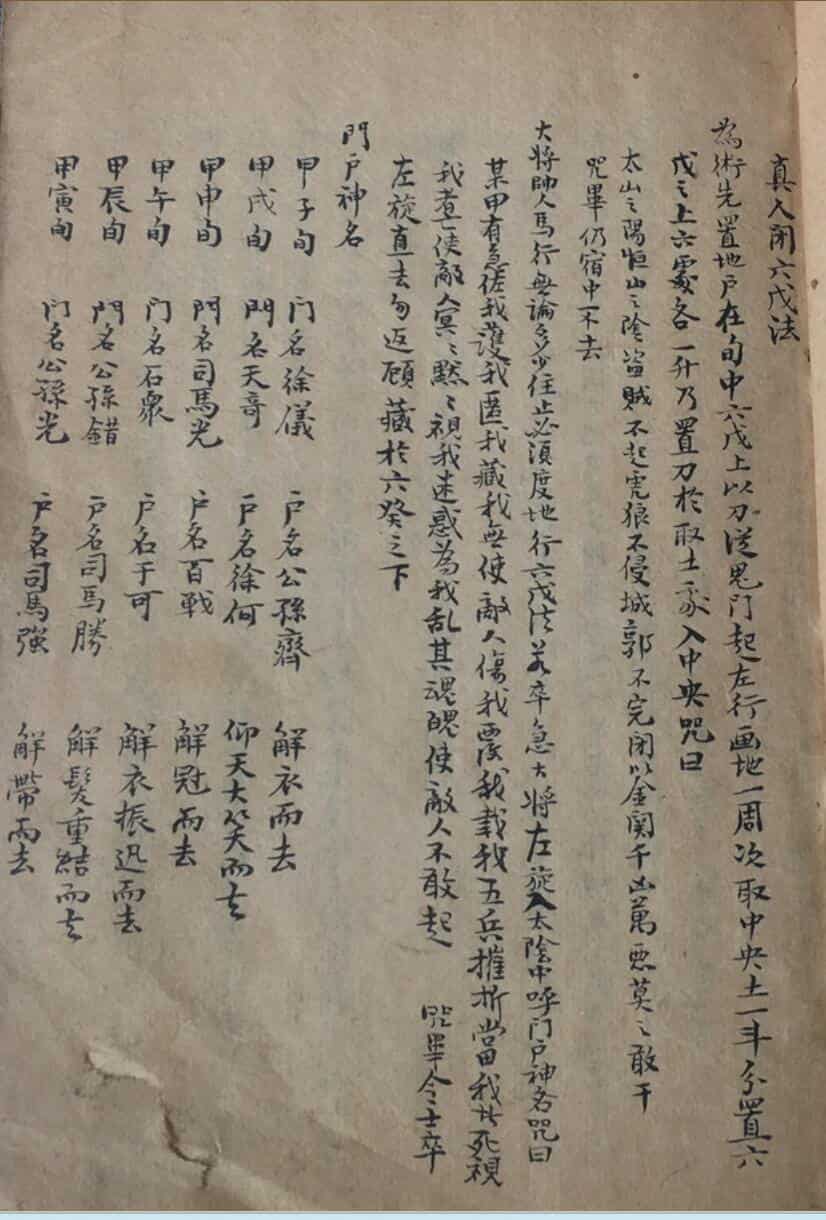 真人閉六戊法
為術先置地户在旬中六戊上以刀從鬼門起左行画地一周次取中央土一斗分置六
戊之上六處各一升乃置刀於取土處入中央咒曰
太山之陽恒山之陰盗賊不起虎狼不侵城郭不完閉以金関千凶萬悪莫之敢干
咒畢仍宿中不去
大将帥人馬行無論多少住止必須度地行六戊法若卒急大将左旋入太陰中呼门户神名咒曰
某甲有急従我護我匿我藏我無使敵人傷我覆我載我五兵摧折當我者死視
我者使敵人冥冥黙黙視我迷惑為我乱其魂魄使敵人不敢起 咒畢令士卒
左旋直去勿返顾藏於六癸之下
門户神名
甲子旬 门名徐儀 户名公孫齊 解衣而去
甲戌旬 門名天哥 户名徐何 仰天大笑而去
甲申旬 門名司馬光 户名百戰 解冠而去
甲午旬 门名石衆 户名于可 解衣振迅而去
甲辰旬 門名公孫錯 户名司馬勝 解髮重結而去
甲寅旬 门名公孫光 户名司馬強 解帶而去